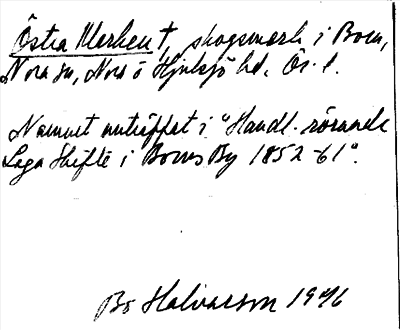 Östra Merkent, skogsmark i Born,
Nora sn, Nora o Hjulsjö hd. Ör. l.
Namnet anträffat i "Handl. rörande
Laga Skifte i Borns By 1852-61".
Bo Halvarson 1946